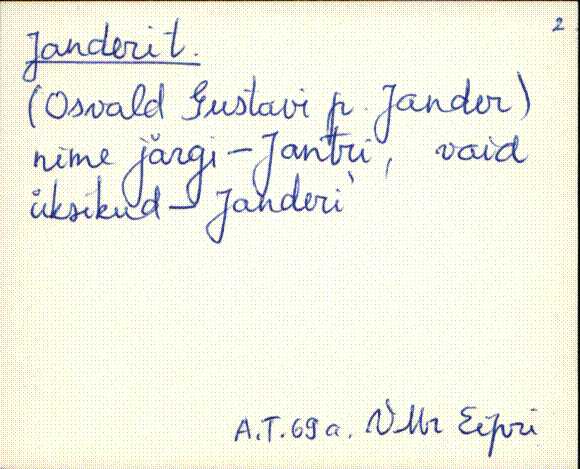 2
Janderi t.
(Osvald Gustavi p. Jander)
nime järgi – Jantri, vaid
üksikud – Janderi
A.T. 69 a. VMr